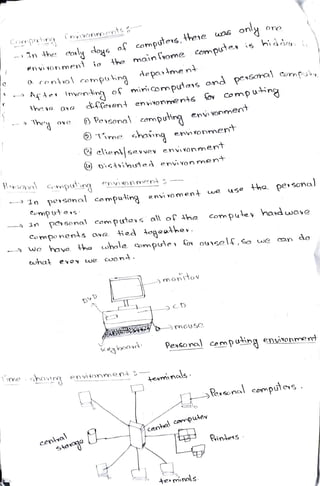 Computing Environments :-
→ In the early days of computers, there was only one
environment is the mainframe computer is hidden in
a central computing department
→ After invention of minicomputers and personal computer
there are different environments for computing
→ They are ① Personal computing environment
② Time sharing environment
③ client/server environment
④ Distributed environment
Personal computing environment :-
→ In personal computing enviroment we use the personal
computers.
→ In personal computers all of the computer hardware
components are tied togeather.
→ We have the whole computer for ourself, so we can do
what ever we want.
→ monitor
DVD
→ CD
→ mouse
keyboard
Personal computing environment
Time sharing environment :-
terminals.
→ Personal computers.
central computer
central
storage
Printers
terminals